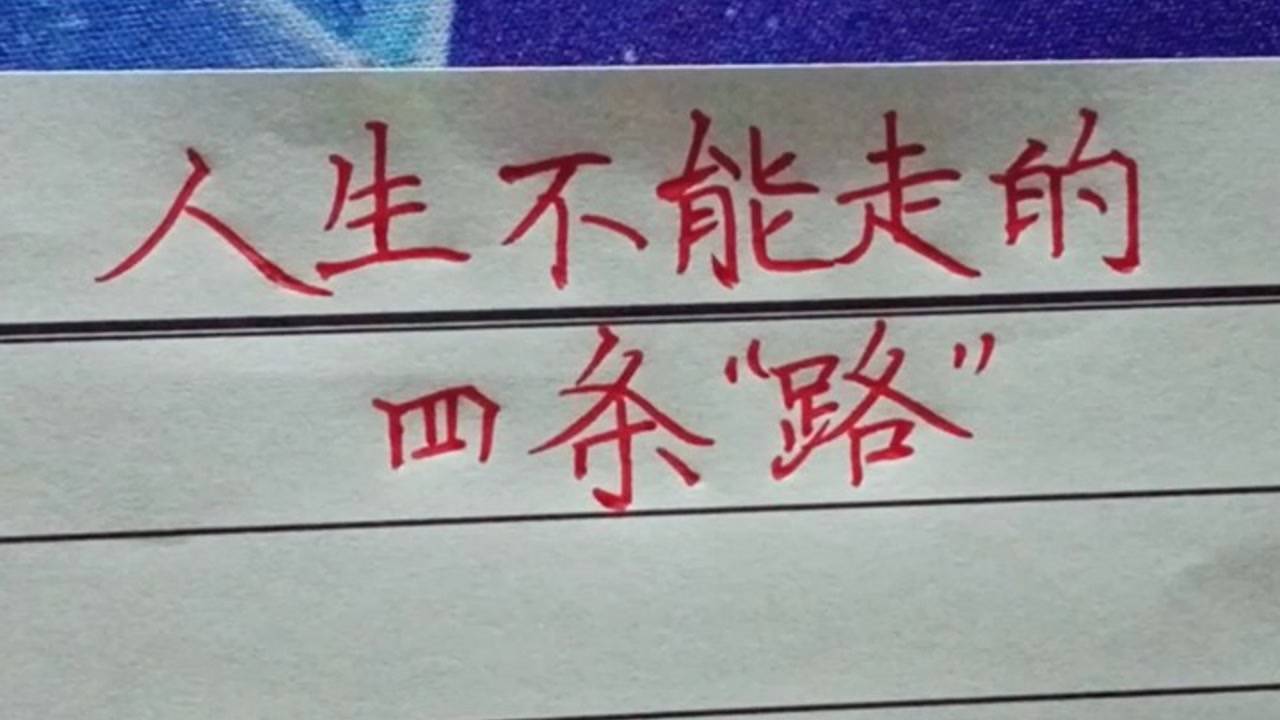 人生不能走的
四条“路”